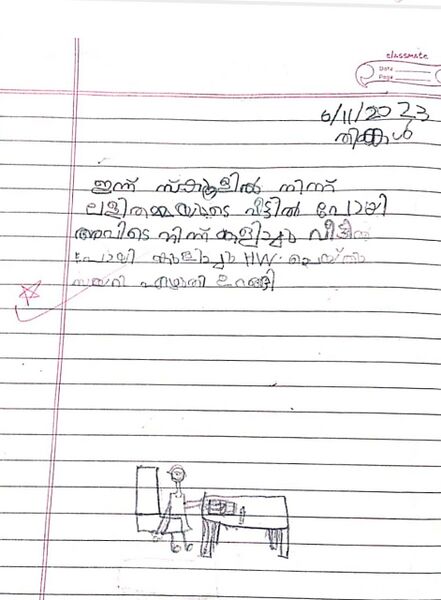 classmate
Date
Page
6/11/2023
തിങ്കൾ
ഇന്ന് സ്കൂളിൽ നിന്ന്
ലളിതമ്മയുടെ വീട്ടിൽ പോയി
അവിടെ നിന്ന് കളിച്ചു വീട്ടിൽ
പോയി കുളിച്ചു HW ചെയ്തു
ഡയറി എഴുതി ഉറങ്ങി